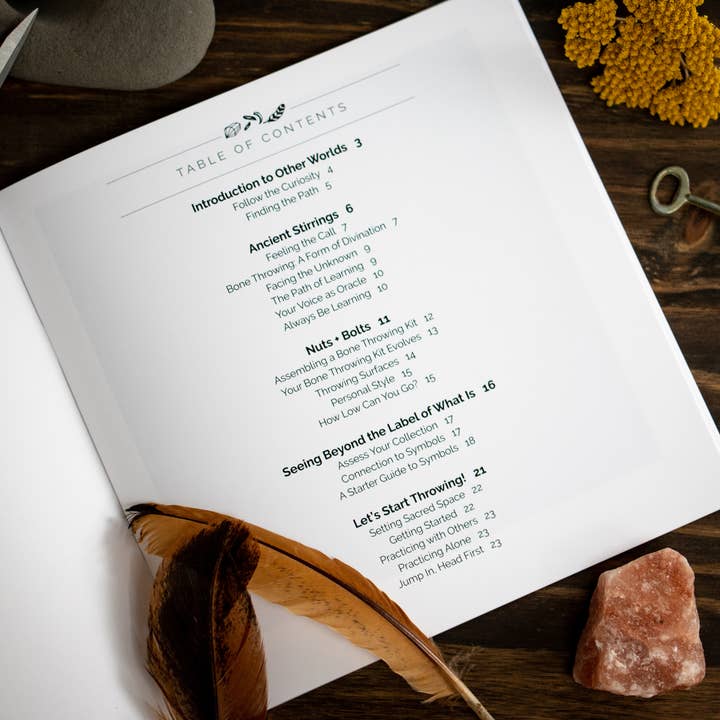 TABLE OF CONTENTS
Introduction to Other Worlds 3
Follow the Curiosity 4
Finding the Path 5
Ancient Stirrings 6
Feeling the Call 7
Bone Throwing: A Form of Divination 7
Facing the Unknown 9
The Path of Learning 9
Your Voice as Oracle 10
Always Be Learning 10
Nuts + Bolts 11
Assembling a Bone Throwing Kit 12
Your Bone Throwing Kit Evolves 13
Throwing Surfaces 14
Personal Style 15
How Low Can You Go? 15
Seeing Beyond the Label of What Is 16
Assess Your Collection 17
Connection to Symbols 17
A Starter Guide to Symbols 18
Let's Start Throwing! 21
Setting Sacred Space 22
Getting Started 22
Practicing with Others 23
Practicing Alone 23
Jump In, Head First 23